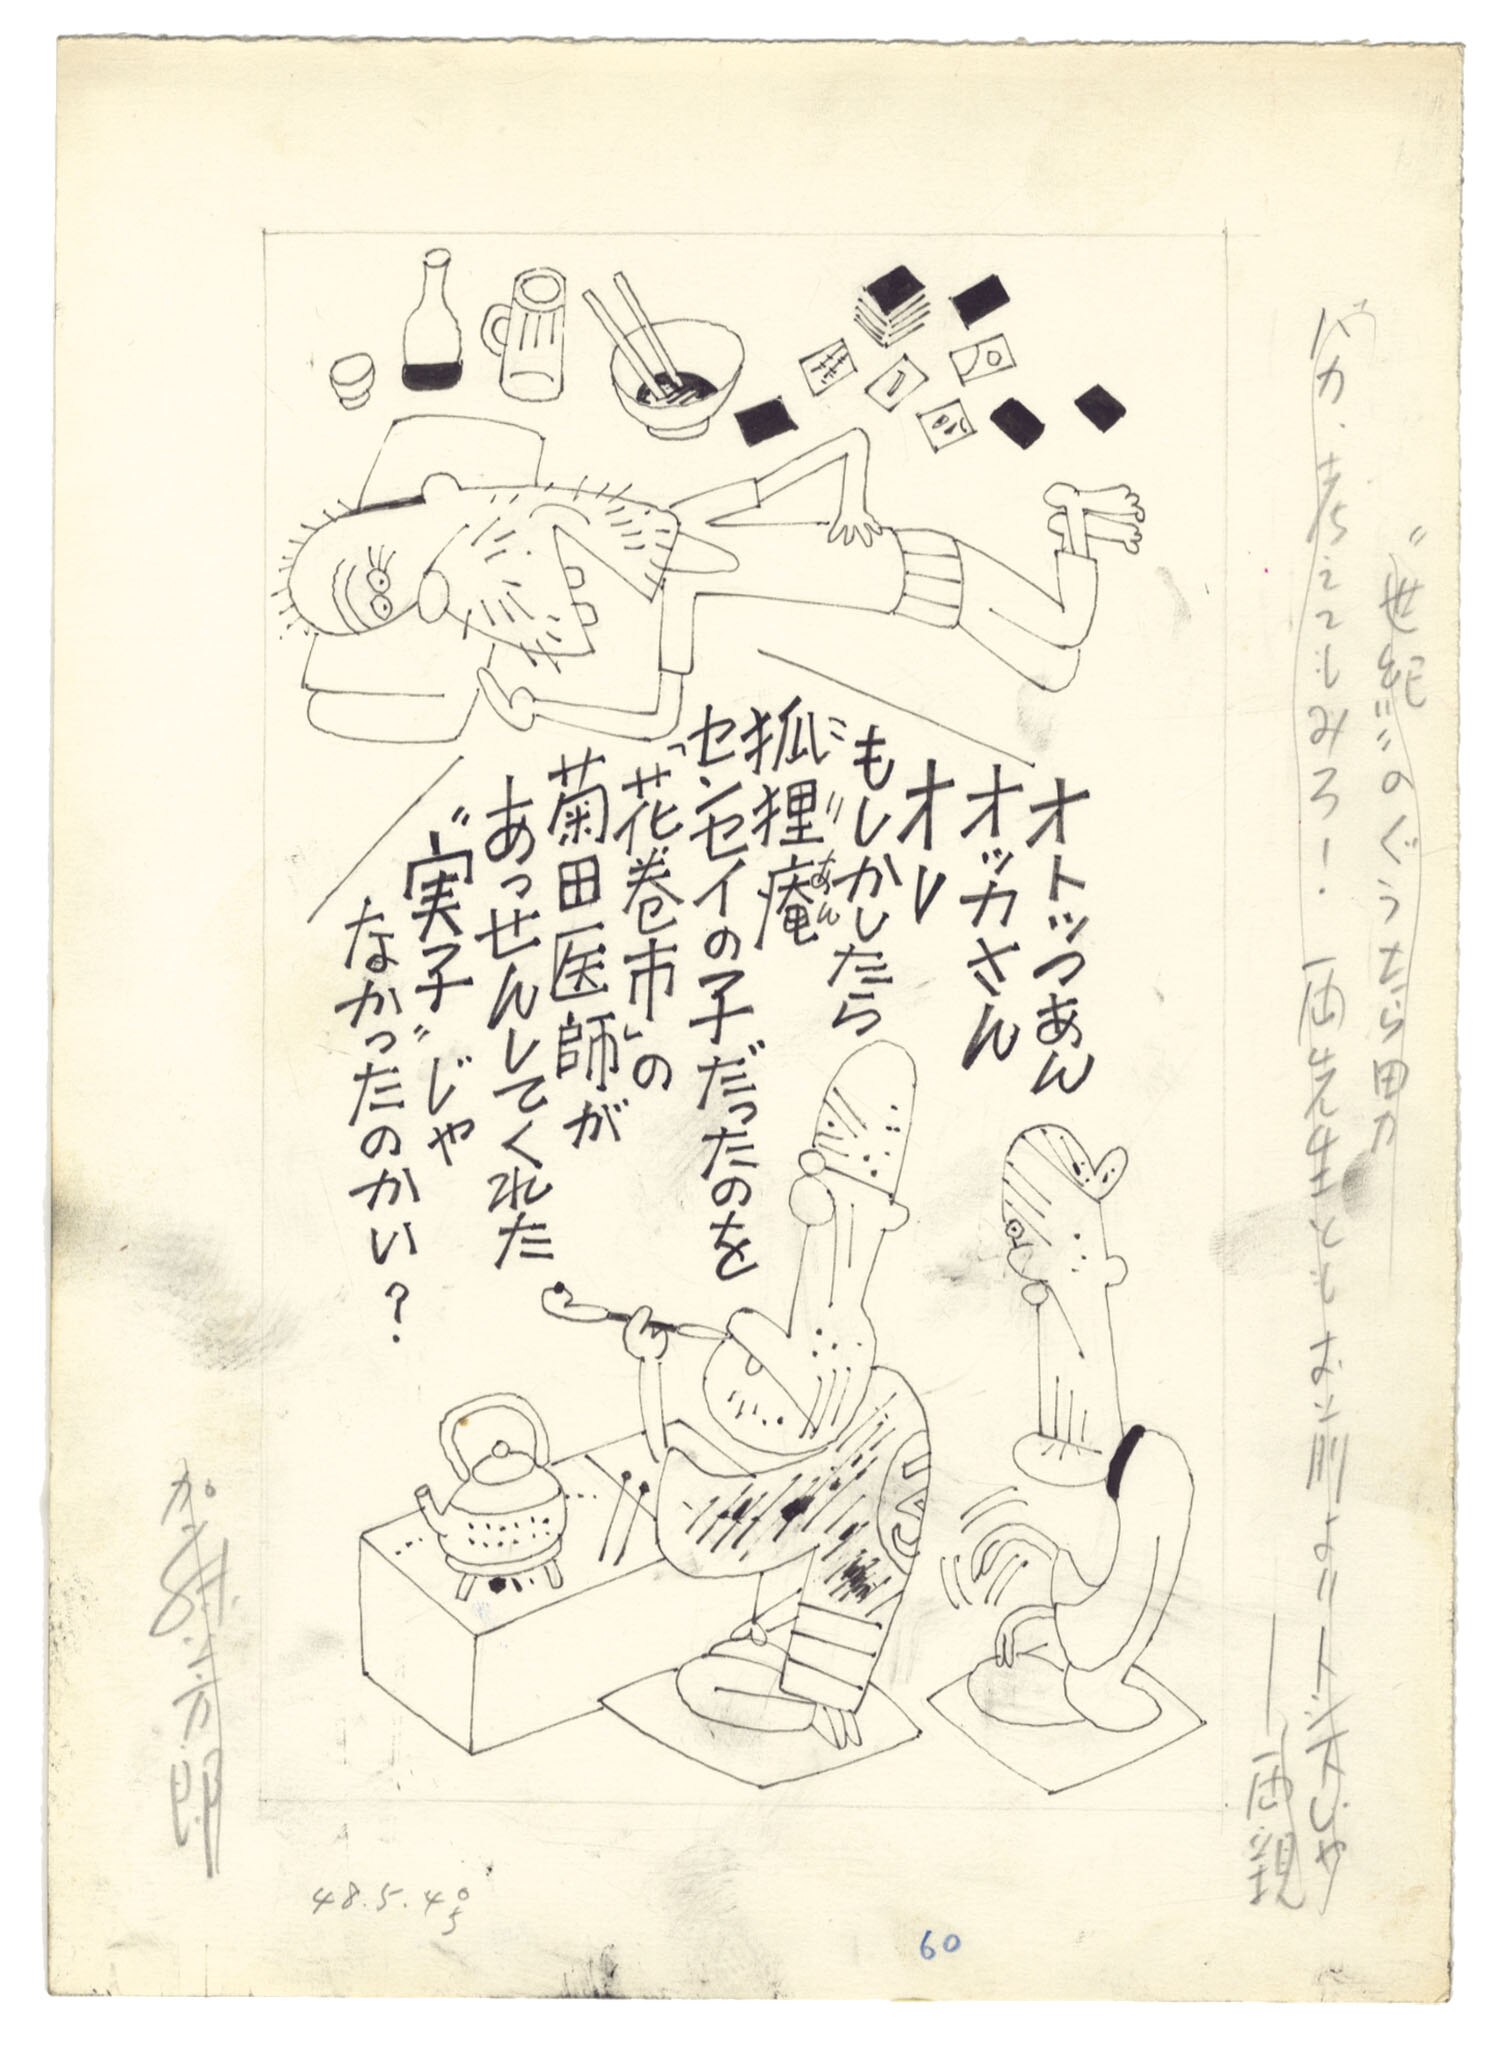 〝世紀〟のぐうたら男
バカ、考えてもみろー.両先生ともお前よりトシ下じゃ
——両親
オトッつあん
オッカさん
オレ
もしかしたら
狐狸庵
こりあん
センセイの子だったのを
「花巻市」の
菊田医師が
あっせんしてくれた
〝実子〟じゃ
なかったのかい?
加藤芳郎
48.5.4
60